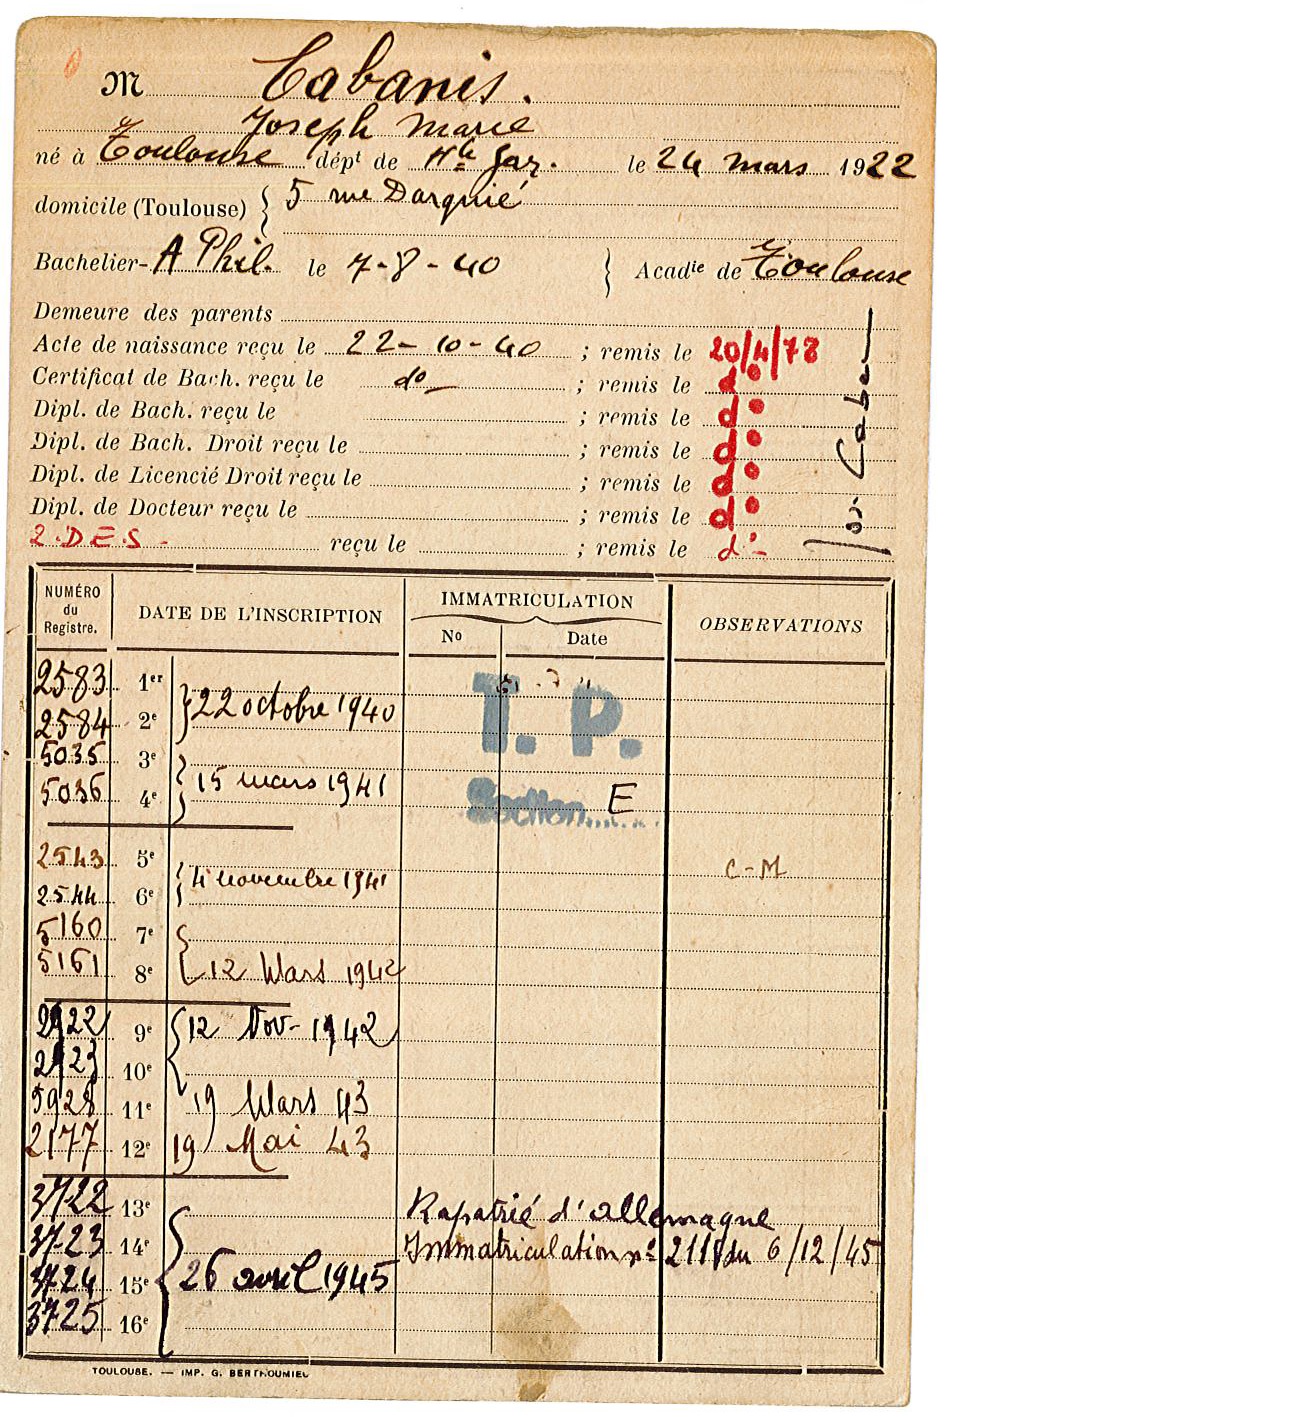 M Cabanis.
Joseph Marie
né à Toulouse dépt de Hte Gar. le 24 mars 1922
domicile (Toulouse) { 5 rue Darquié
Bachelier- A Phil. le 7-8-40 } Acadie de Toulouse
Demeure des parents
Acte de naissance reçu le 22-10-40 ; remis le 20/4/78
Certificat de Bach. reçu le do ; remis le do
Dipl. de Bach. reçu le ; remis le do
Dipl. de Bach. Droit reçu le ; remis le do
Dipl. de Licencié Droit reçu le ; remis le do
Dipl. de Docteur reçu le ; remis le do
2.D.E.S- reçu le ; remis le do
NUMÉRO du Registre. DATE DE L'INSCRIPTION IMMATRICULATION No Date OBSERVATIONS
2583 1er
2584 2e } 22 octobre 1940 T. P.
5035 3e
5036 4e } 15 mars 1941 Section E
2543 5e C-M
2544 6e { 4 novembre 1941
5160 7e
5161 8e { 12 Mars 1942
2922 9e { 12 Nov- 1942
2923 10e
5928 11e 19 Mars 43
2177 12e 19 Mai 43
3722 13e Rapatrié d'allemagne
3723 14e Immatriculation no du 6/12/45
3724 15e { 26 avril 1945
3725 16e
TOULOUSE. — IMP. G. BERTHOUMIEU